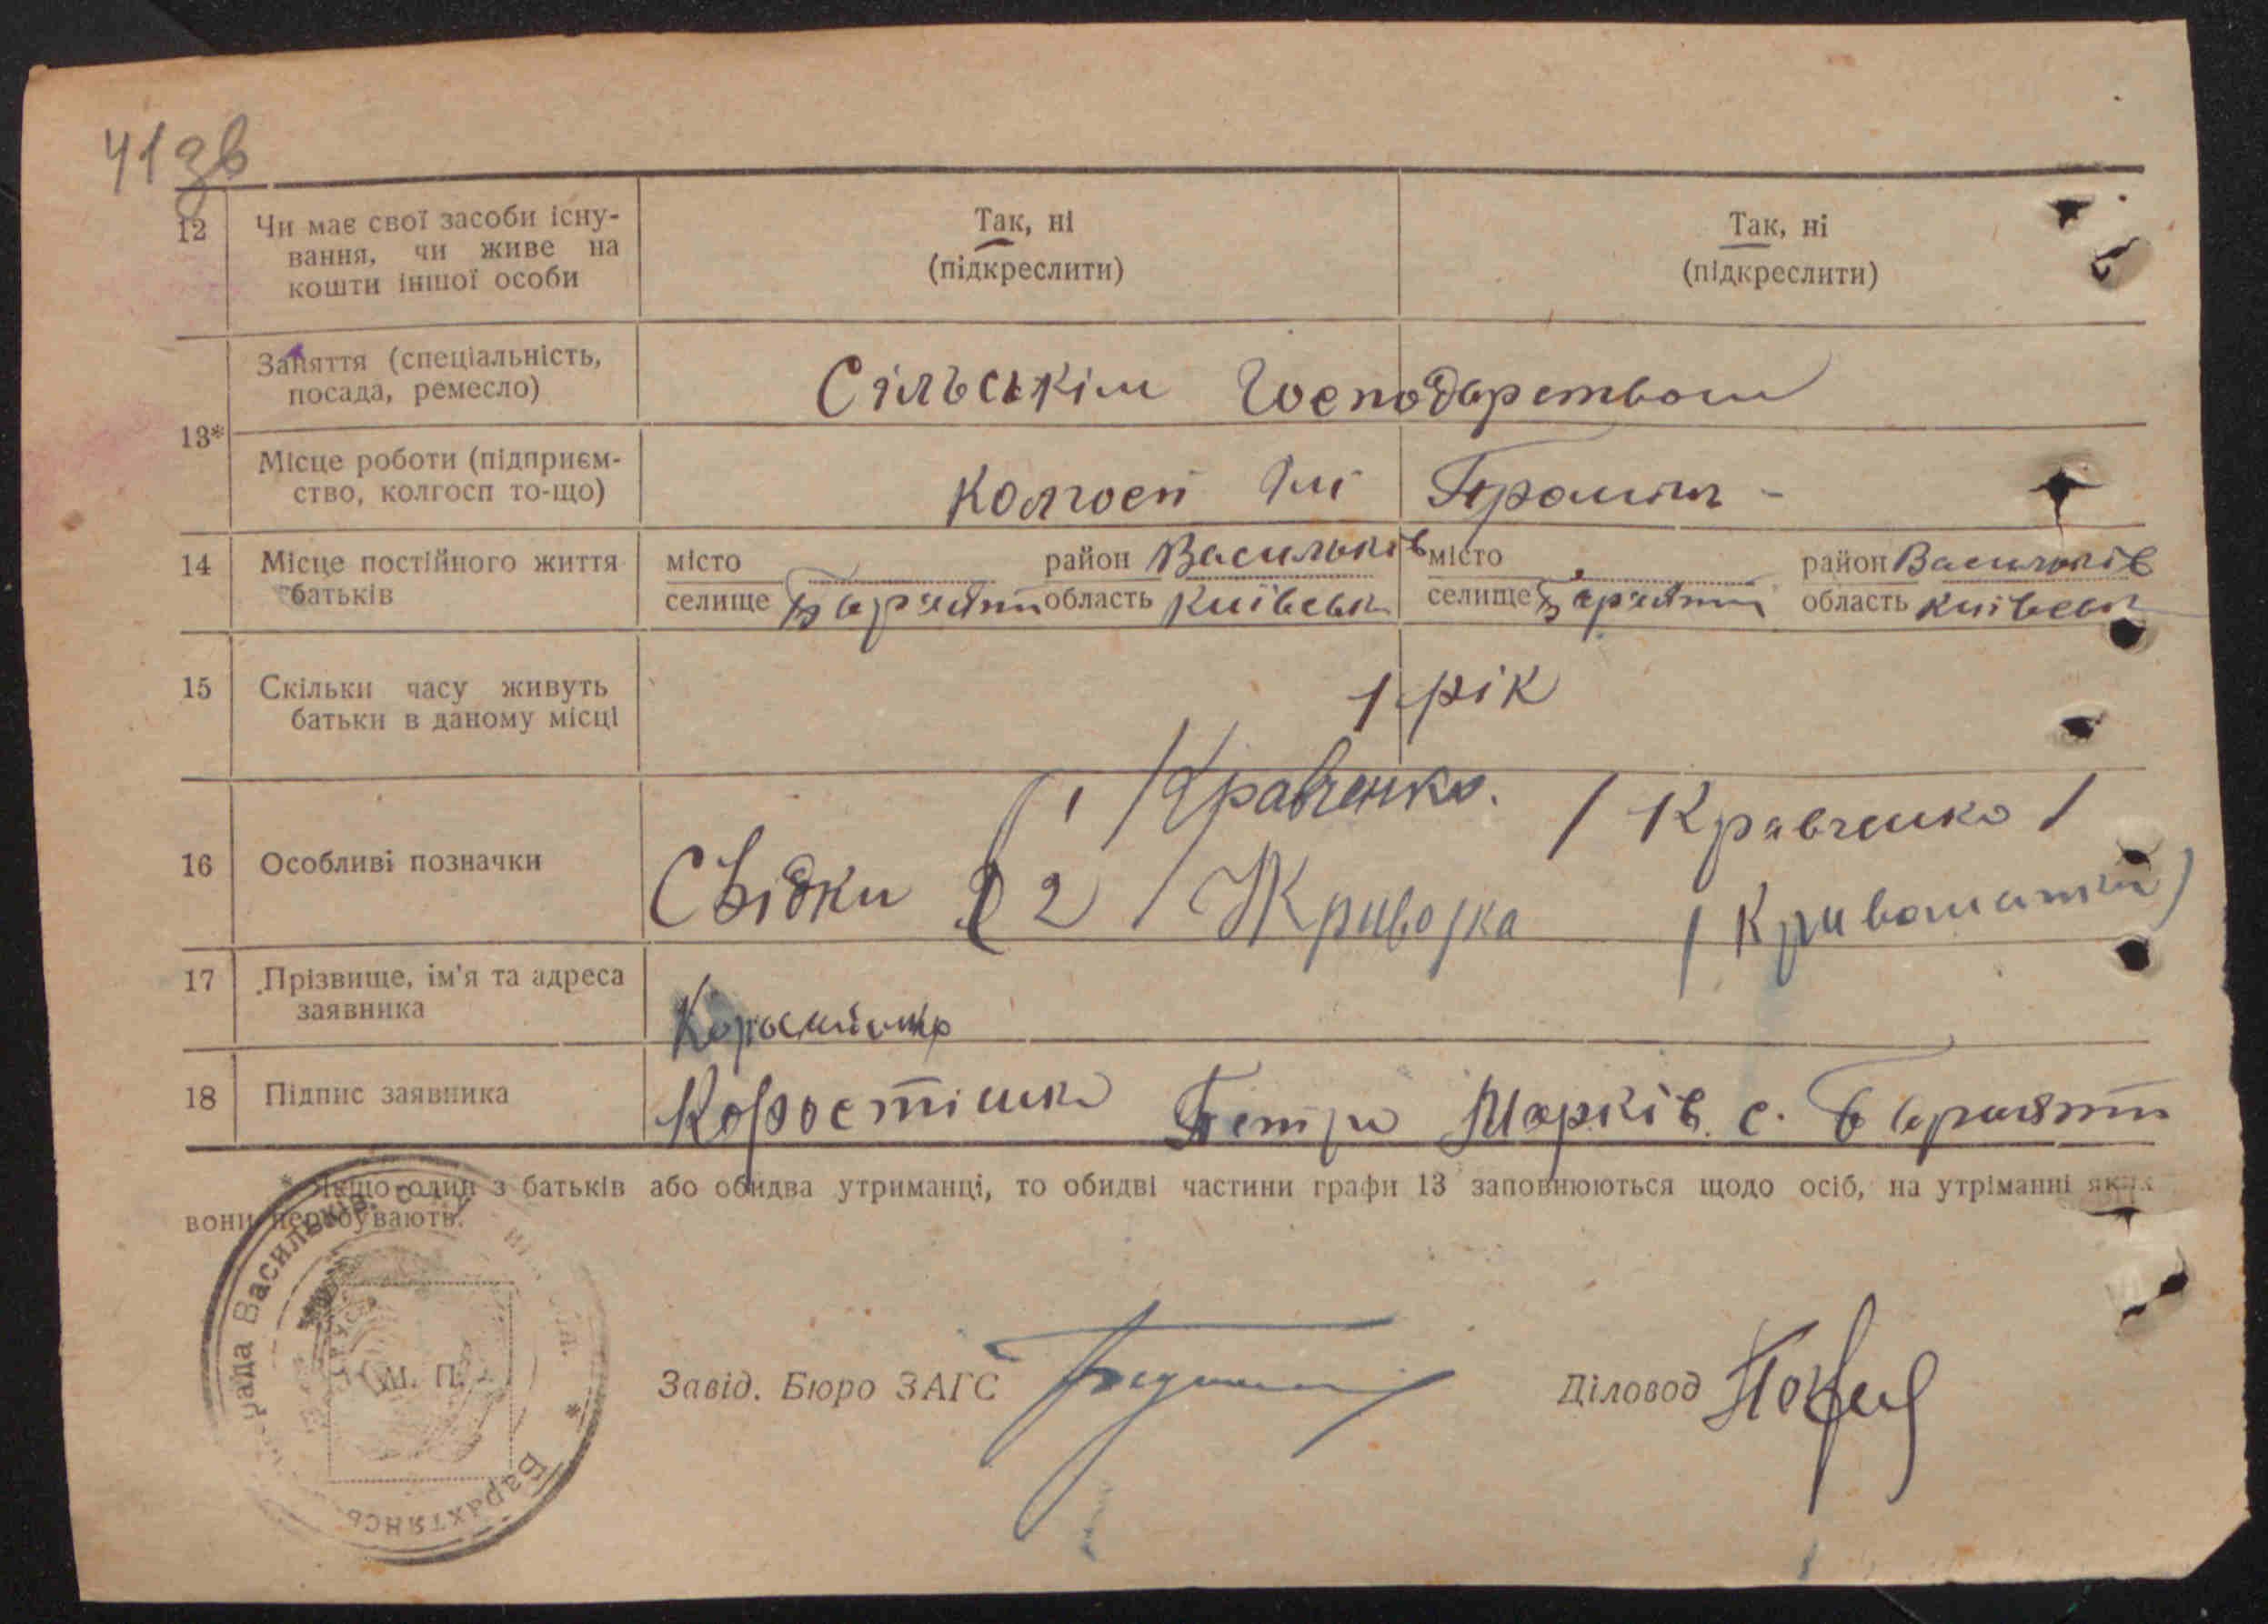 41 зв
12 Чи має свої засоби існу-
вання, чи живе на
кошти іншої особи
Так, ні
(підкреслити)
Так, ні
(підкреслити)
13*
Заняття (спеціальність,
посада, ремесло)
Сільськім Господарством
Місце роботи (підприєм-
ство, колгосп то-що)
Колгосп
14 Місце постійного життя
батьків
місто район Васильків
селище область Київськ
місто район Васильків
селище область Київськ
15 Скільки часу живуть
батьки в даному місці
1 рік
16 Особливі позначки
1 / Кравченко. / Кравченко /
Свідки 2 /
17 Прізвище, ім'я та адреса
заявника
18 Підпис заявника
Петро Марків. с.
* Якщо один з батьків або обидва утриманці, то обидві частини графи 13 заповнюються щодо осіб, на утріманні яких
вони перебувають.
рада Васильків
М. П.
Барахтянсь
Завід. Бюро ЗАГС
Діловод